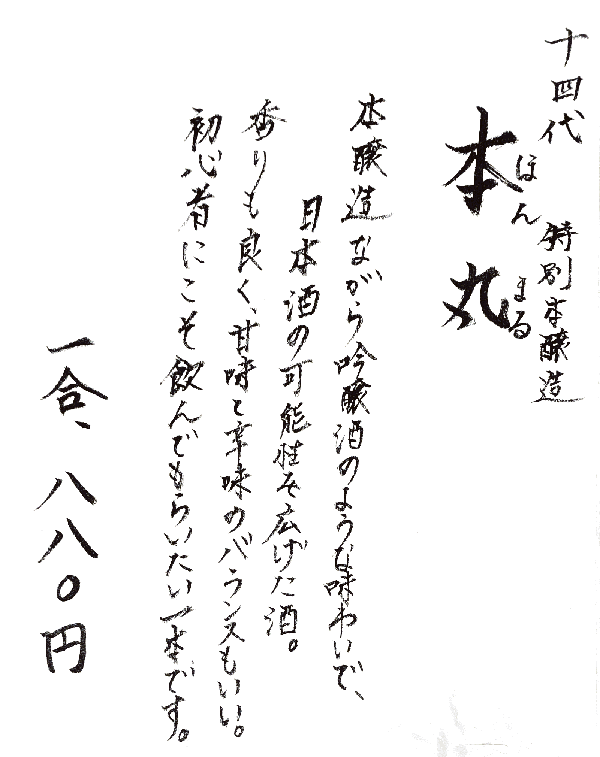 十四代　特別本醸造
本丸
ほんまる
本醸造ながら吟醸酒のような味わいで、
日本酒の可能性を広げた酒。
香りも良く、甘味と辛味のバランスもいい。
初心者にこそ飲んでもらいたい一本です。
一合、八八〇円